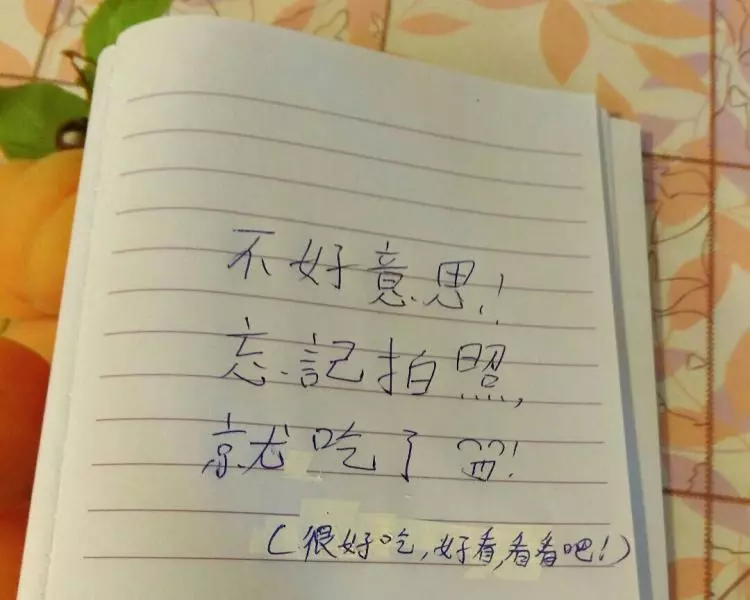 不好意思!
忘記拍照,
就吃了!
(很好吃,好看,看看吧!)